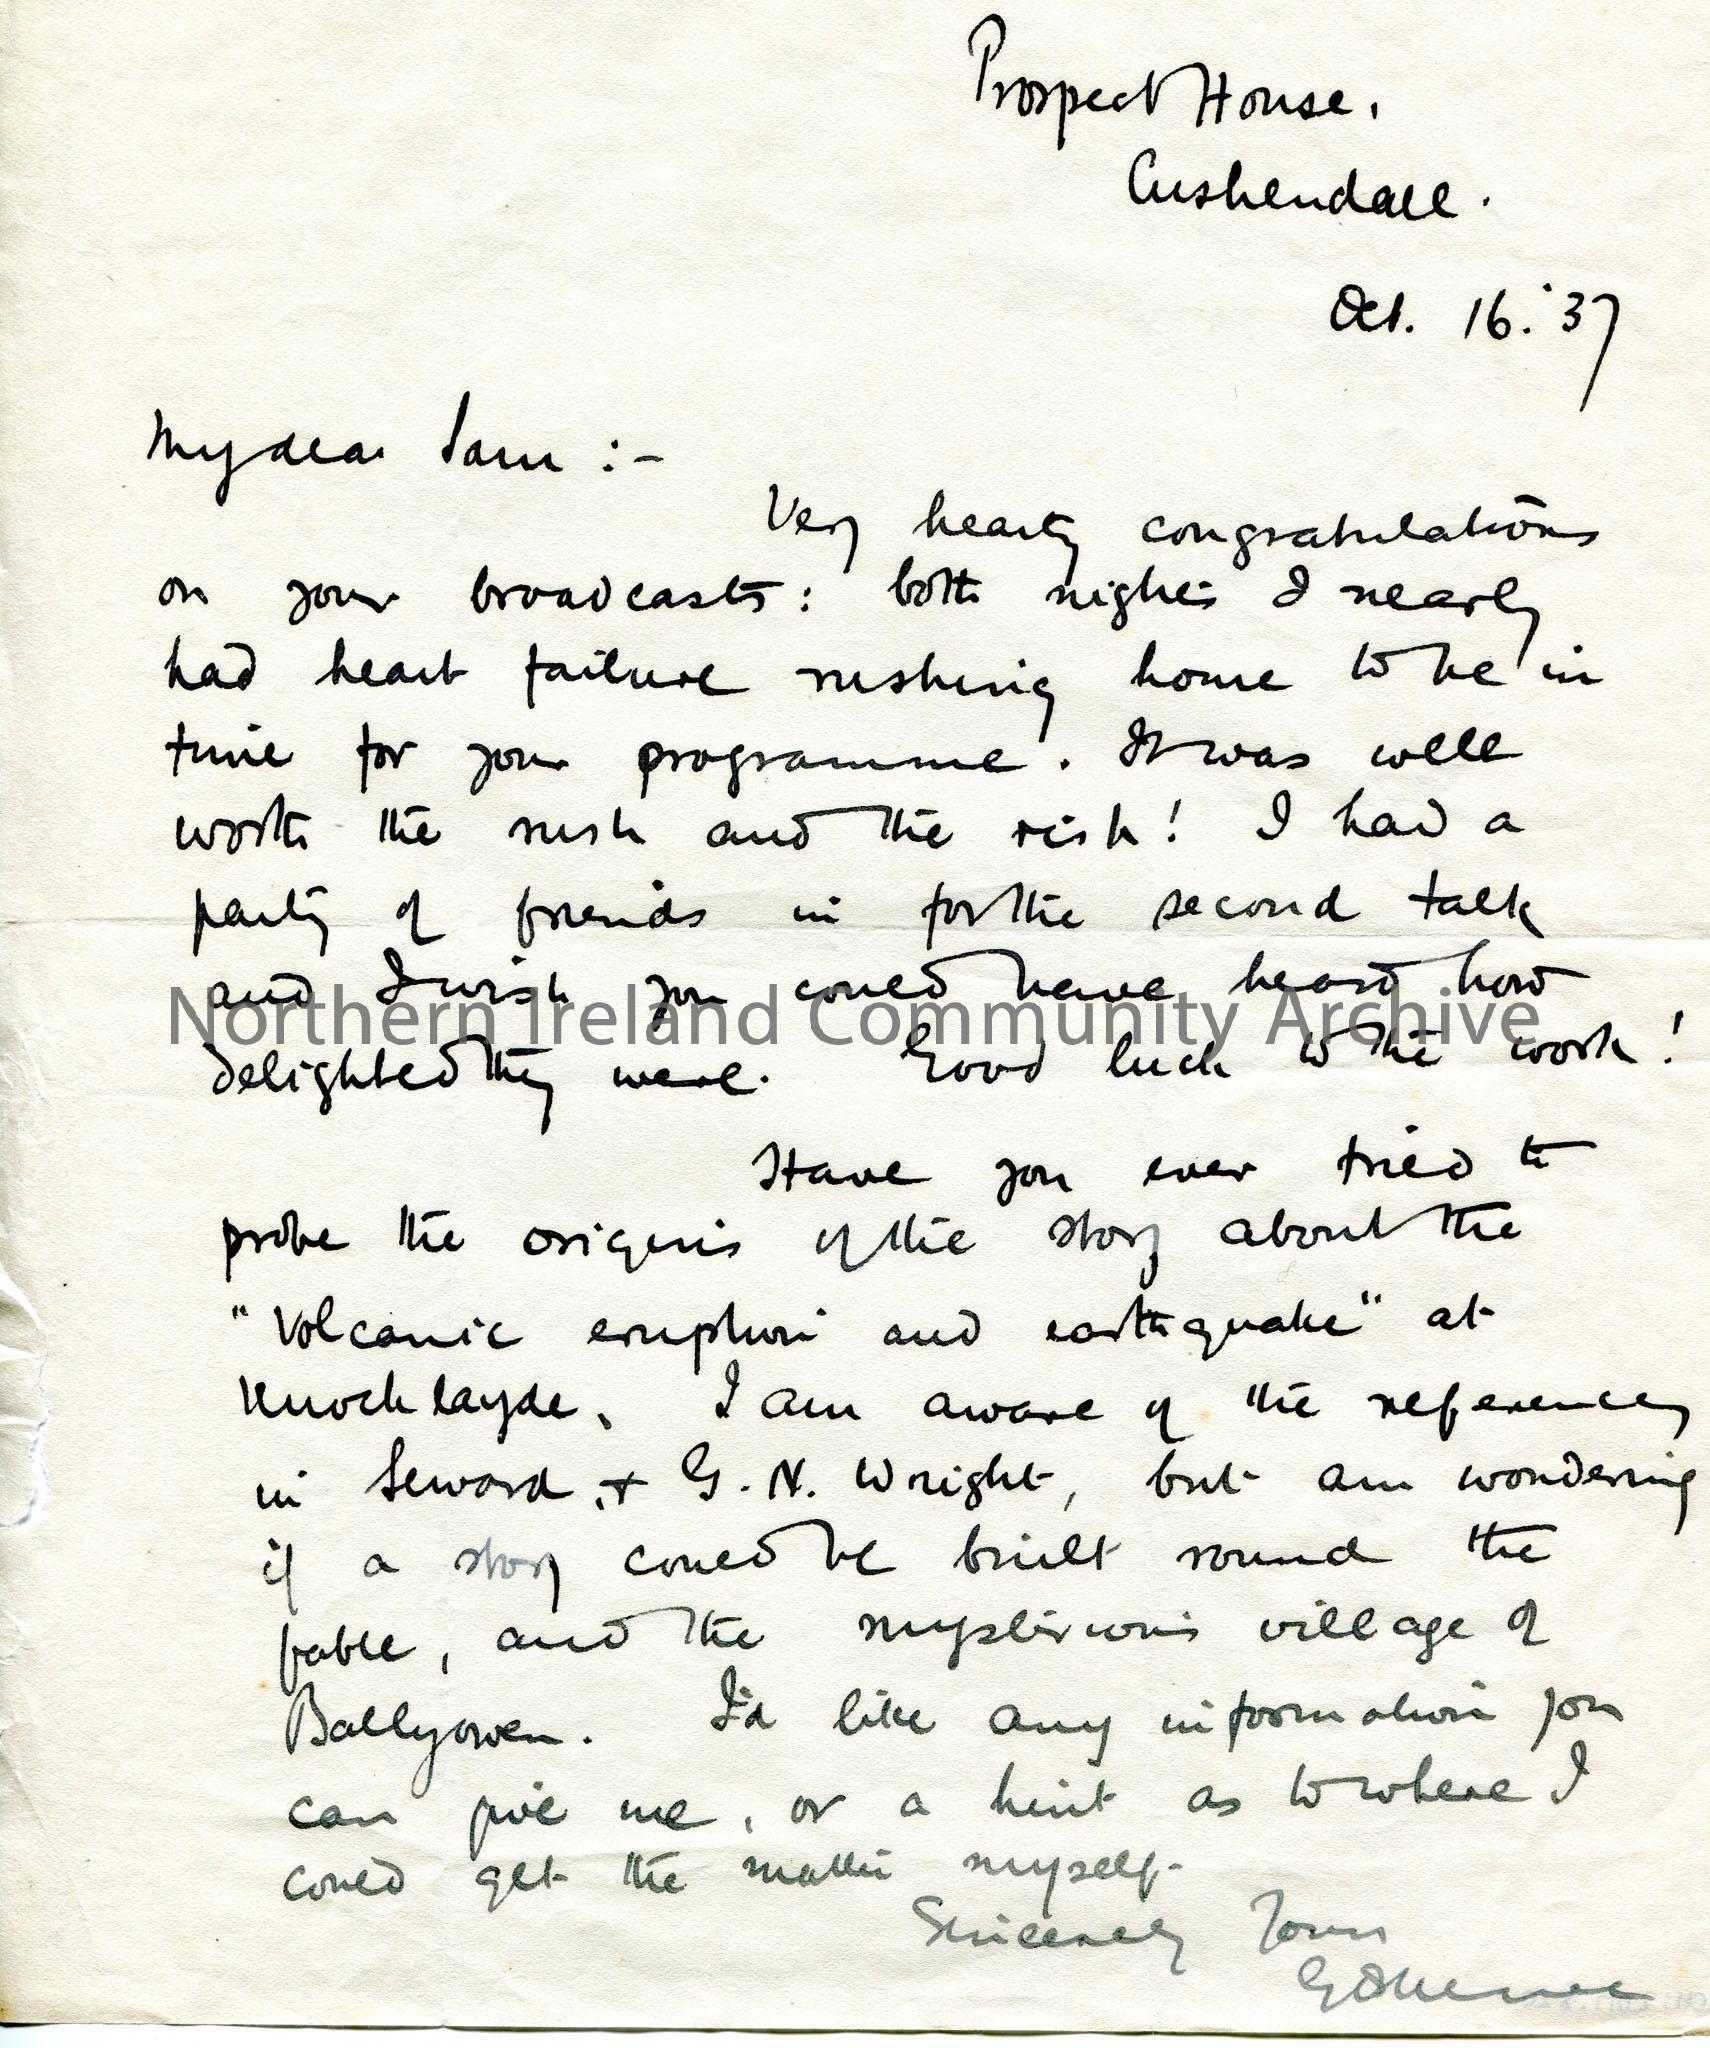 Prospect House,
Cushendall.
Oct. 16. '37
My dear Sam :-
Very hearty congratulations
on your broadcasts: both nights I nearly
had heart failure rushing home to be in
time for your programme. It was well
worth the rush and the risk! I had a
party of friends in for the second talk
and I wish you could have heard how
delighted they were. Good luck to the work!
Have you ever tried to
probe the origins of the story about the
"Volcanic eruption and earthquake" at
Knocklayde. I am aware of the references
in Seward, + G. N. Wright, but am wondering
if a story could be built round the
fable, and the mysterious village of
Ballyowen. I'd like any information you
can give me, or a hint as to where I
could get the matter myself.
Sincerely Yours
Northern Ireland Community Archive